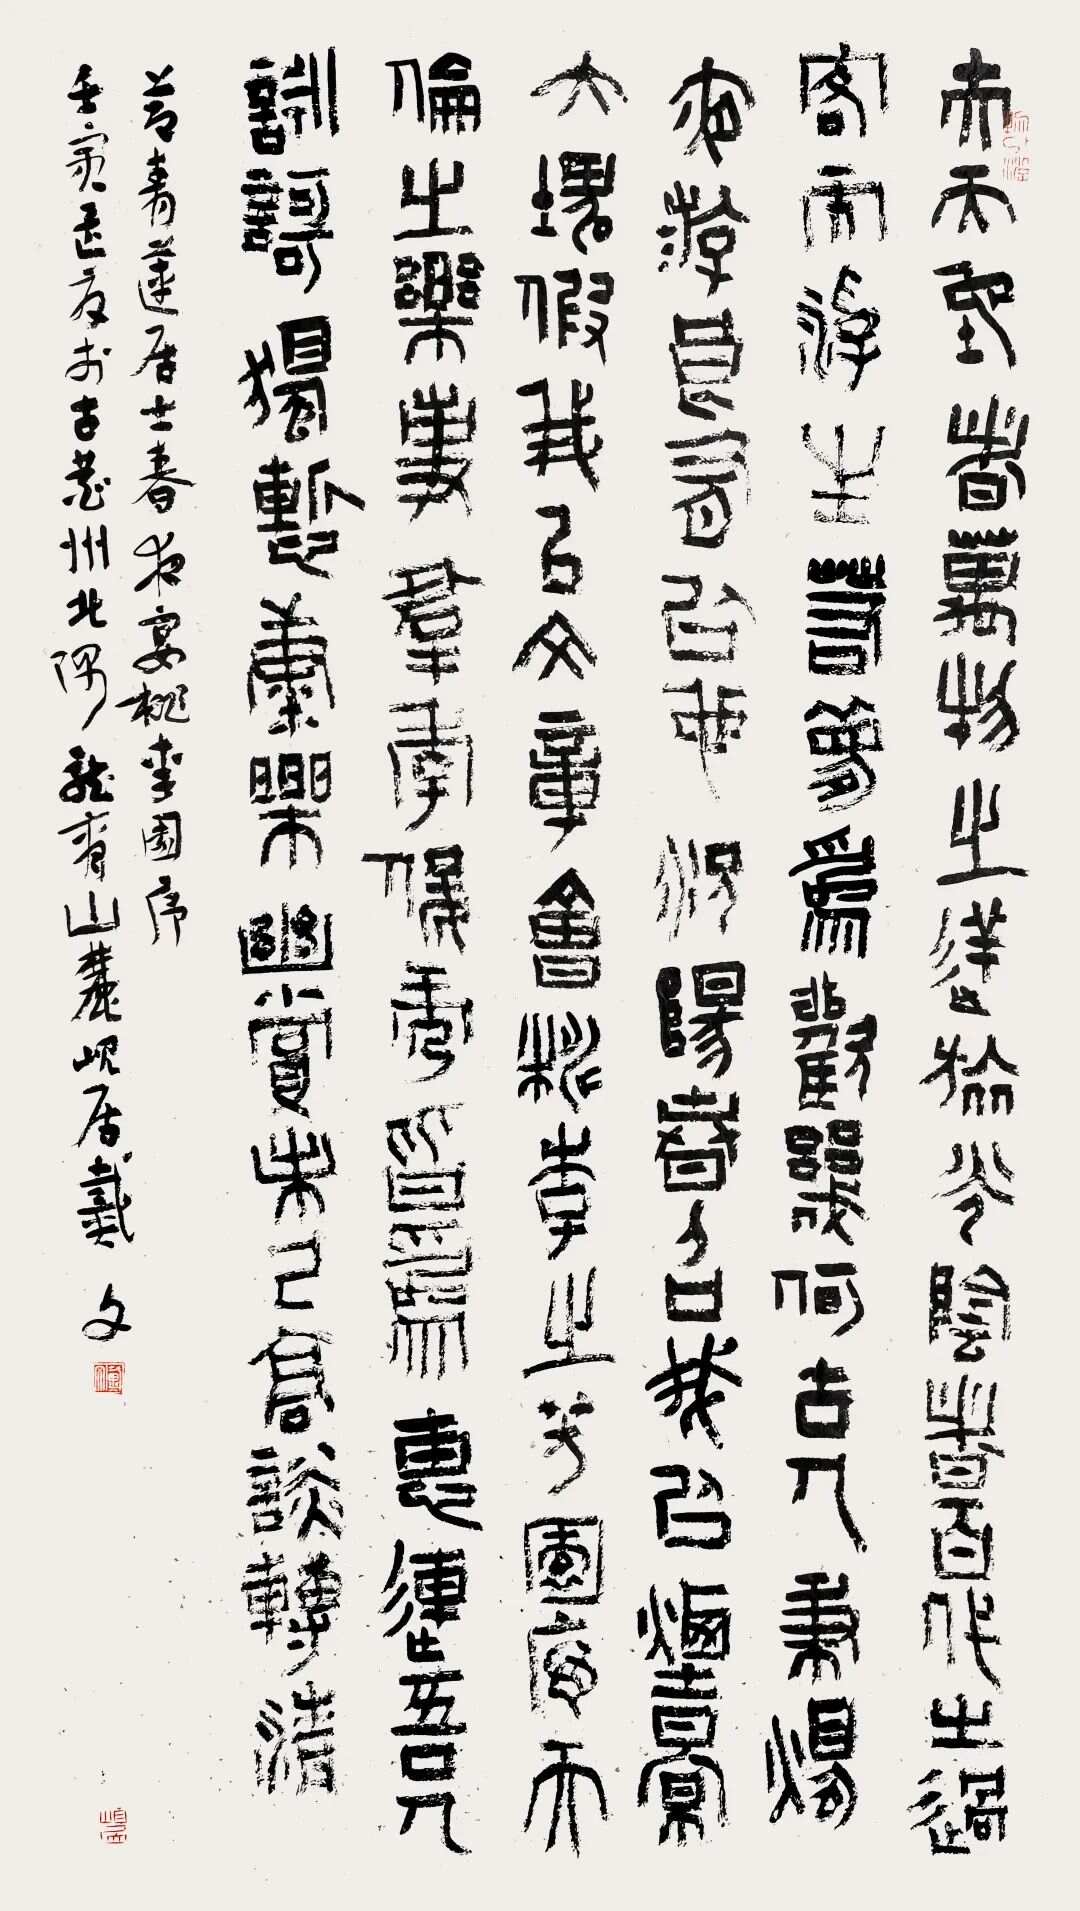 夫天地者萬物之逆旅光陰者百代之過
客而浮生若夢爲歡幾何古人秉燭
夜游良有以也況陽春召我以煙景
大塊假我以文章會桃李之芳園序天
倫之樂事羣季俊秀皆爲惠連吾人
詠歌獨慙康樂幽賞未已高談轉清
节青蓮居士春夜宴桃李園序
壬寅孟夏於古州北隅龍脊山麓峴居戴文